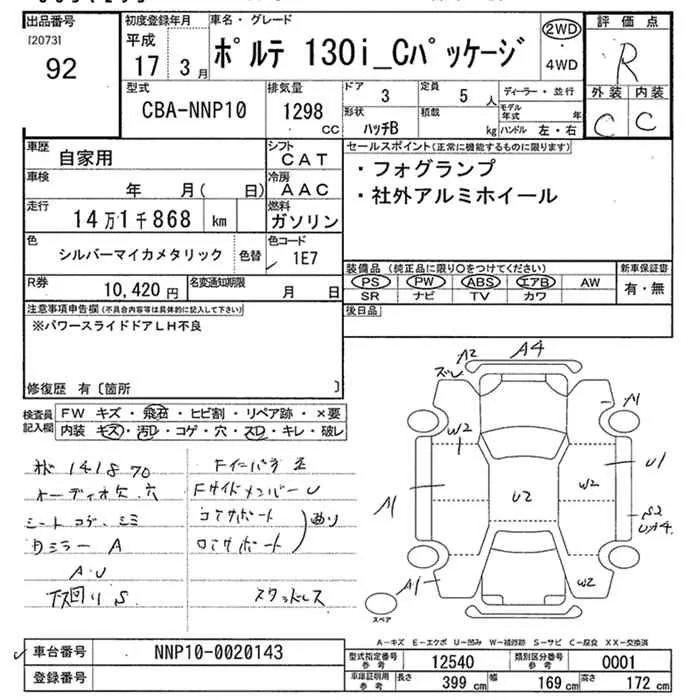 出品番号
[2073]
92
初度登録年月
平成
17 3月
車名・グレード
ポルテ 130i_Cパッケージ
2WD
・
4WD
評価点
R
外装 内装
C C
型式
CBA-NNP10
排気量
1298
CC
ドア
3
定員
5 人
ディーラー・並行
形状
ハッチB
積載
kg
モデル
年式 年
ハンドル 左・右
車歴
自家用
シフト
CAT
車検
年 月( 日)
冷房
AAC
走行
14万1千868 km
燃料
ガソリン
色
シルバーマイカメタリック
色替
色コード
1E7
R券
10,420 円
名変通知期限
月 日
セールスポイント(正常に機能するものに限ります)
・フォグランプ
・社外アルミホイール
装備品 (純正品に限り○をつけてください)
PS PW ABS エアB AW
SR ナビ TV カワ
新車保証書
有・無
後日品
注意事項申告欄(不具合内容等は具体的に記入して下さい)
※パワースライドドアLH不良
修復歴 有〔箇所 〕
検査員
記入欄
FW キズ・飛石・ヒビ割・リペア跡・×要
内装 キズ・汚D・コゲ・穴・スD・キレ・破レ
141870
オーディオ欠.穴
シートコゲ.シミ
A
A.U
下回りS
Fインパネ
Fサイドメンバー U
コアサポート
ロアサポート
曲り
スタッドレス
A2
ズレ
A4
A1
W2
W2
U1
U2
A1
S2
UA4
A1
W2
スペア
A-キズ E-エクボ U-凹み W-補修跡 S-サビ C-腐食 XX-交換済
車台番号
NNP10-0020143
登録番号
型式指定番号
参考
12540
類別区分番号
参考
0001
車庫証明用
参考
長さ
399 cm
幅
169 cm
高さ
172 cm